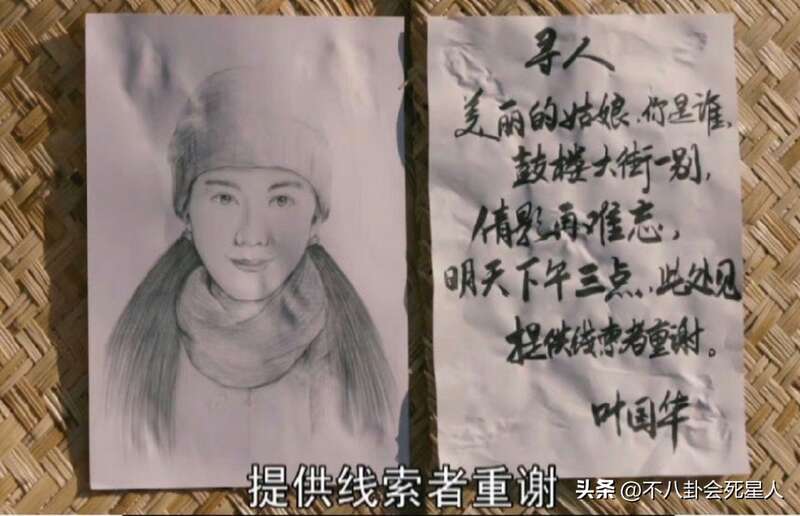 寻人
美丽的姑娘、你是谁、
鼓楼大街一别,
倩影再难忘,
明天下午三点、此处见
提供线索者重谢。
叶国华
提供线索者重谢
头条 @不八卦会死星人